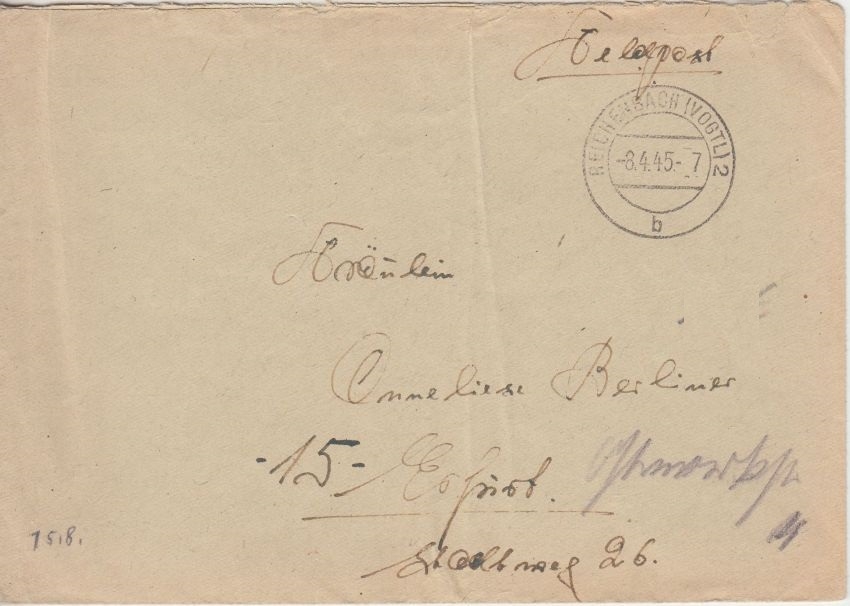 Feldpost
REICHENBACH (VOGTL) 2
-8.4.45.- 7
b
Fräulein
Anneliese Berliner
-15- Erfurt.
26.
15.8.